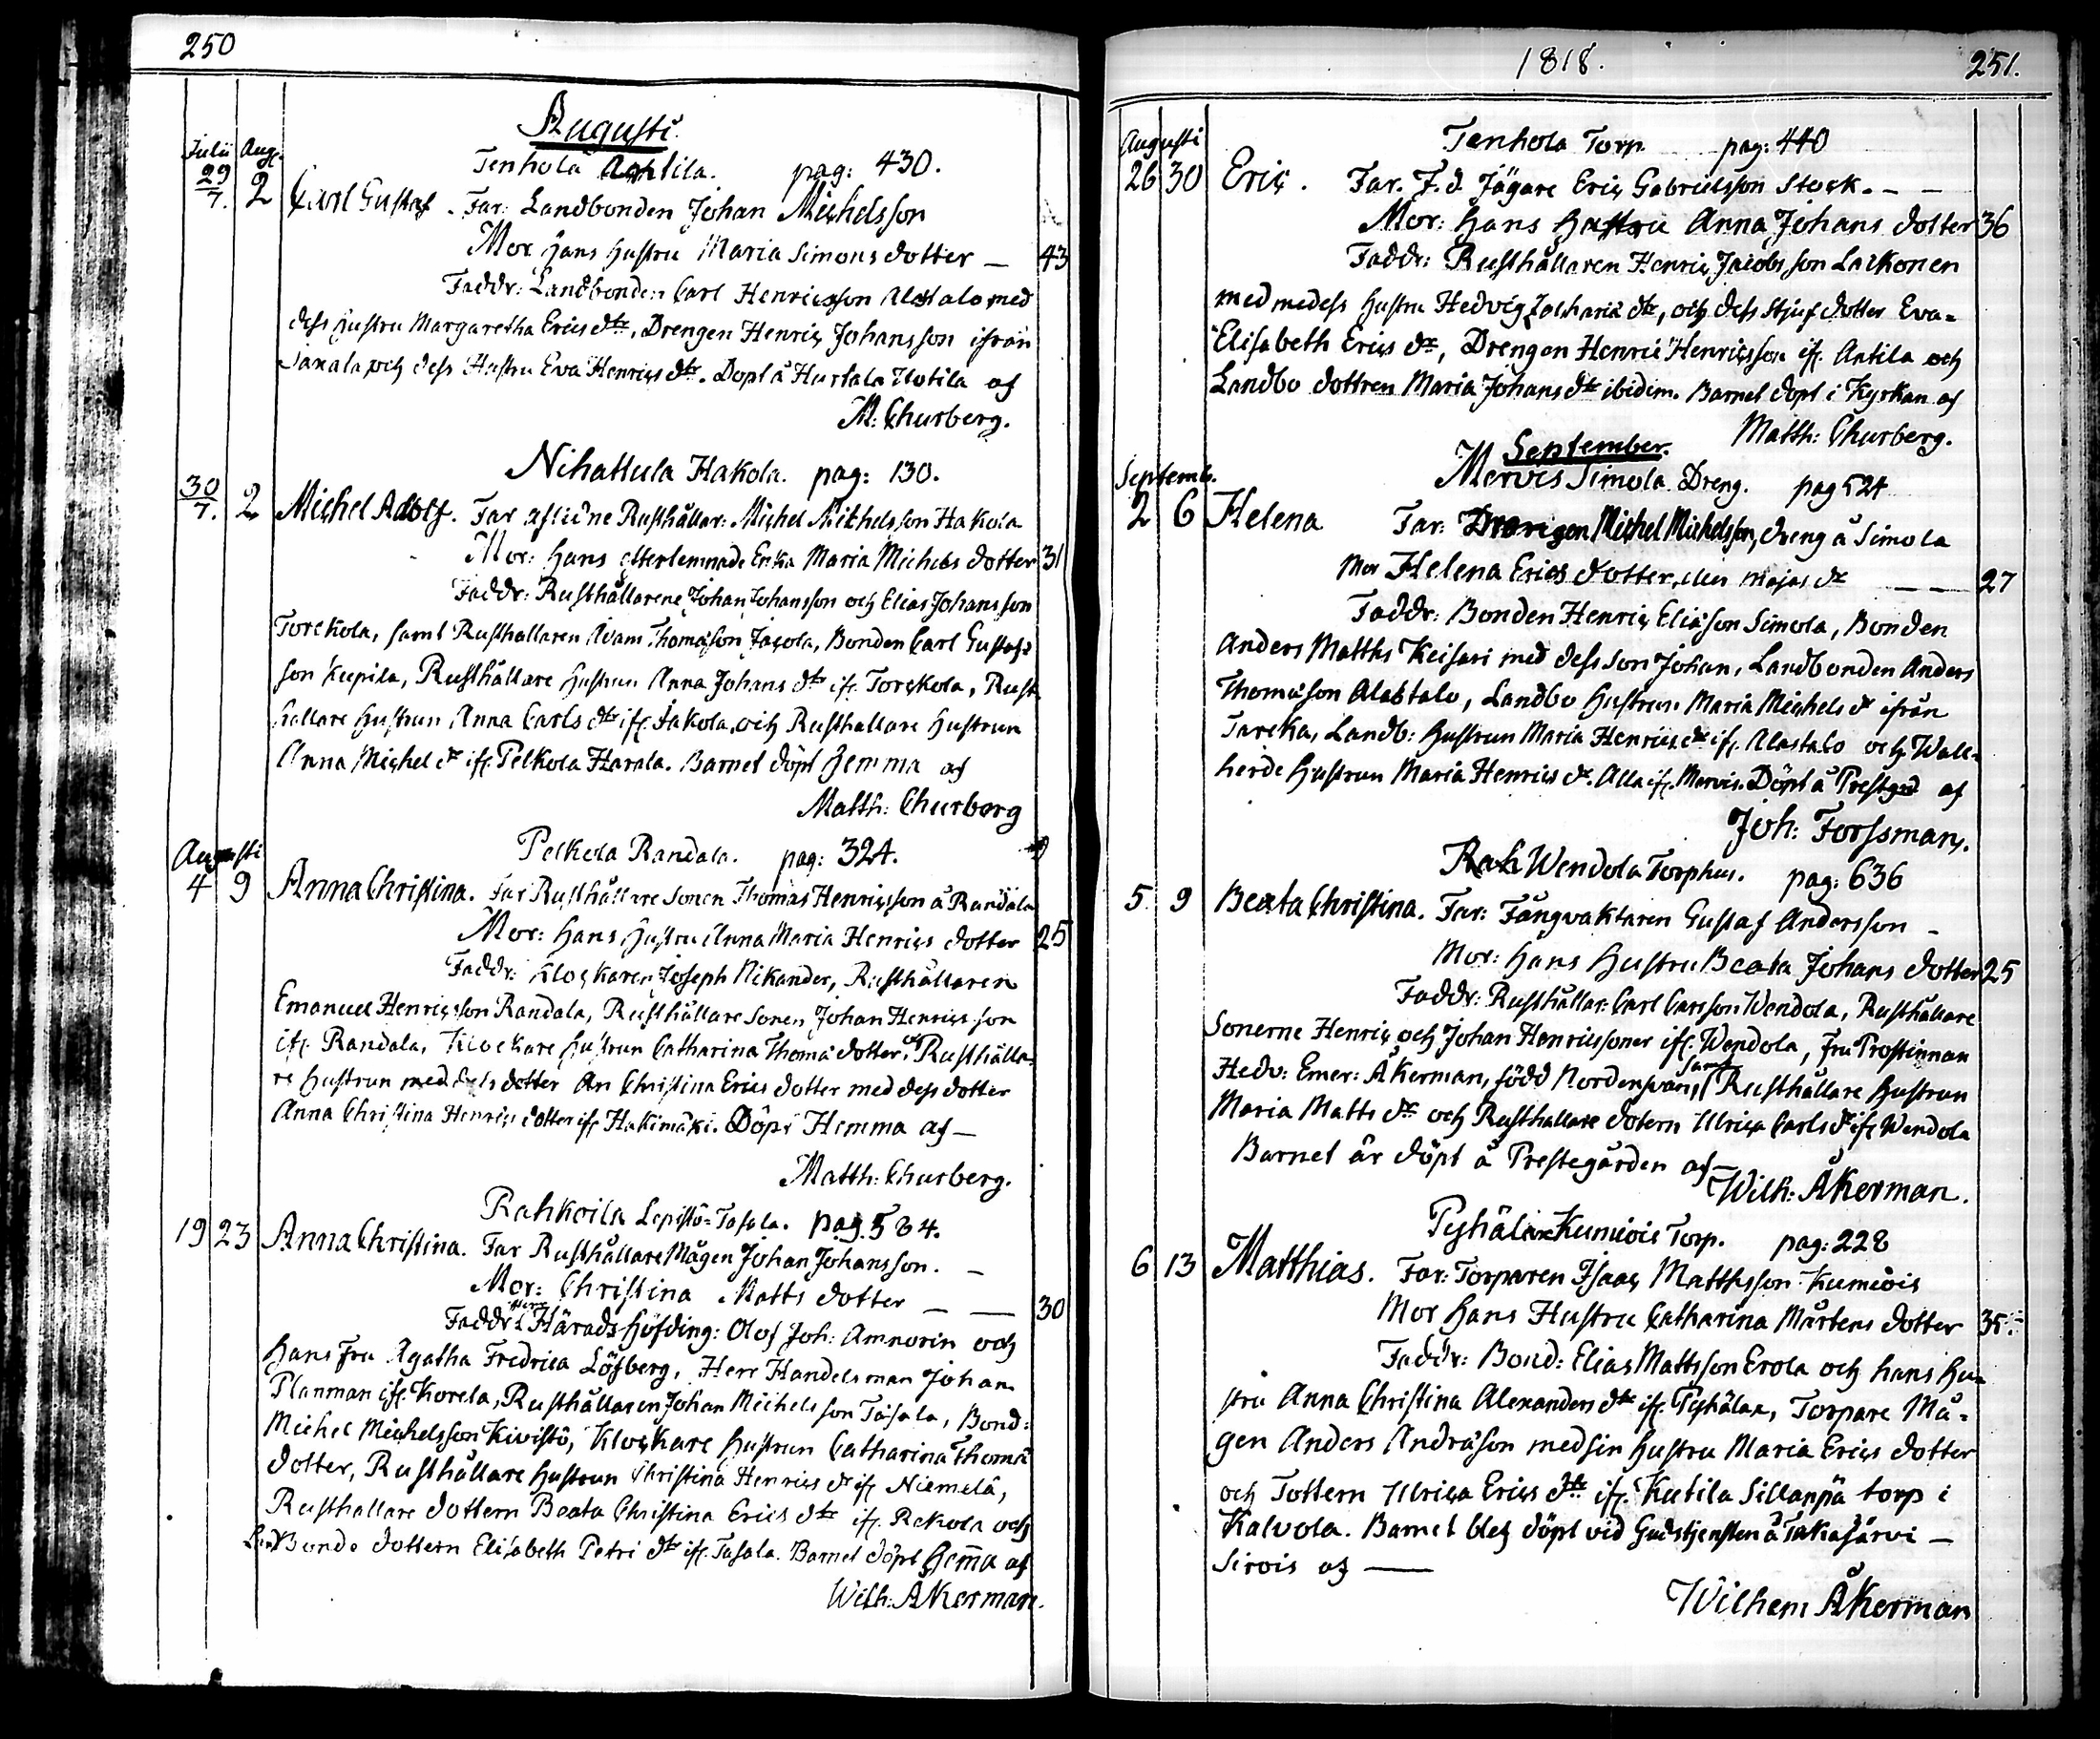 250
Augusti.
Julii Aug.
Tenhola Anttila. pag: 430.
29/7. 2 Carl Gustaf. Far: Landbonden Johan Michelsson
Mor Hans Hustru Maria Simons dotter — 43
Faddr: Landbonden Carl Henricsson Alastalo med
dess hustru Margaretha Erics dtr, Drengen Henric Johansson ifrån
och dess Hustru Eva Henrics dtr. Döpt å Hurtala Uotila af
M: Churberg.
Nihattula Hakola. pag: 130.
30/7. 2 Michel Adolf. Far aflidne Rusthållar: Michel Michelsson Hakola
Mor: Hans efterlemnade Enka Maria Michels dotter 31
Faddr: Rusthållarene Johan Johansson och Elias Johansson
Torckola, samt Rusthållaren Adam Thomasson Jacola, Bonden Carl Gustafs=
son Kepila, Rusthållare hustrun Anna Johans dtr ifr. Torckola, Rust
hållare hustrun Anna Carls dtr ifr. Jakola, och Rusthållare hustrun
Anna Michel dr ifr. Pelkola Harala. Barnet döpt Hemma af
Matth: Churberg
Augusti
Pelkola Randala. pag: 324.
4 9 Anna Christina. Far Rusthållare Sonen Thomas Henricsson å Randala
Mor: Hans Hustru Anna Maria Henrics dotter 25
Faddr: Klockaren Joseph Nikander, Rusthållaren
Emanuel Henricsson Randala, Rusthållare Sonen Johan Henricsson
ifr. Randala, Klockare hustrun Catharina Thomä dotter, och Rusthålla=
re hustrun med dess dotter An Christina Erics dotter med dess dotter
Anna Christina Henrics dotter ifr Hakimäki. Döpt Hemma af —
Matth: Churberg.
Rahkoila Lepistö=Tasala. pag. 584.
19 23 Anna Christina. Far Rusthållare Mågen Johan Johansson. —
Mor: Christina Matts dotter — — 30
Faddr: Herr Härads Höfding: Olof Joh: Amnorin och
Hans Fru Agatha Fredrica Löfberg, Herr Handelsman Johan
Planman ifr. Korela, Rusthållaren Johan Michelsson Tasala, Bond:
Michel Michelsson Kivistö, Klockare hustrun Catharina Thomä
dotter, Rusthållare hustrun Christina Henrics dr ifr Niemelä,
Rusthållare dottern Beata Christina Erics dtr ifr. Rekola och
LandBonde dottern Elisabeth Petri dtr ifr. Tasala. Barnet döpt Hemma af
Wilh: Åkerman.
1818. 251.
Augusti
Tenhola Torp pag: 440
26 30 Eric. Far. F.d. Jägare Eric Gabrielsson Stock. — —
Mor: Hans Hustru Anna Johans dotter 36
Faddr: Rusthållaren Henric Jacobsson Laikonen
med medess hustru Hedvig Zacharia dtr, och dess Stjuf dotter Eva=
Elisabeth Erics dtr, Drengen Henric Henricsson ifr. Antila och
Landbo dottren Maria Johans dtr ibidem. Barnet döpt i Kyrkan af
Matth: Churberg.
September.
Septemb.
Mervis Simola. Dreng. pag 524
2 6 Helena Far: Drengen Michel Michelsson, dreng å Simola
Mor Helena Erics dotter, eller Majas dr — — 27
Faddr: Bonden Henric Eliäson Simola, Bonden
Anders Matths Keisari med dess son Johan, Landbonden Anders
Thomäson Alastalo, Landbo Hustrun Maria Michels dr ifrån
Tareka, Landb: hustrun Maria Henrics dtr ifr. Alastalo och Wall=
herde hustrun Maria Henrics dr. Alla ifr. Mervis. Döpt å Prestgrd af
Joh: Forssman.
Rah Wendola Torphus. pag: 636
5 9 Beata Christina. Far: Fångvaktaren Gustaf Andersson —
Mor: Hans Hustru Beata Johans dotter 25
Faddr: Rusthållar: Carl Carlsson Wendola, Rusthållare
Sonerne Henric och Johan Henricssoner ifr. Wendola, Fru Prostinnan
Hedv: Emer: Åkerman, född Nordenswan, samt Rusthållare hustrun
Maria Matts dtr och Rusthållare dotern Ulrica Carls dr ifr Wendola
Barnet är döpt å Prestegården af
Wilh: Åkerman.
Pyhälax Kumiois Torp. pag: 228
6 13 Matthias. Far: Torparen Isaac Matthsson Kumiois
Mor Hans Hustru Catharina Mårtens dotter 35.
Faddr: Bond: Elias Mattsson Erola och hans Hu=
stru Anna Christina Alexanders dtr ifr. Pyhälax, Torpare Må=
gen Anders Andräson med sin hustru Maria Erics dotter
och Tottern Ulrica Erics dtr ifr. Kutila Sillanpä torp i
Kalvola. Barnet blef döpt vid Gudstjensten å Takajärvi —
Sirois af —
Wilhem Åkerman